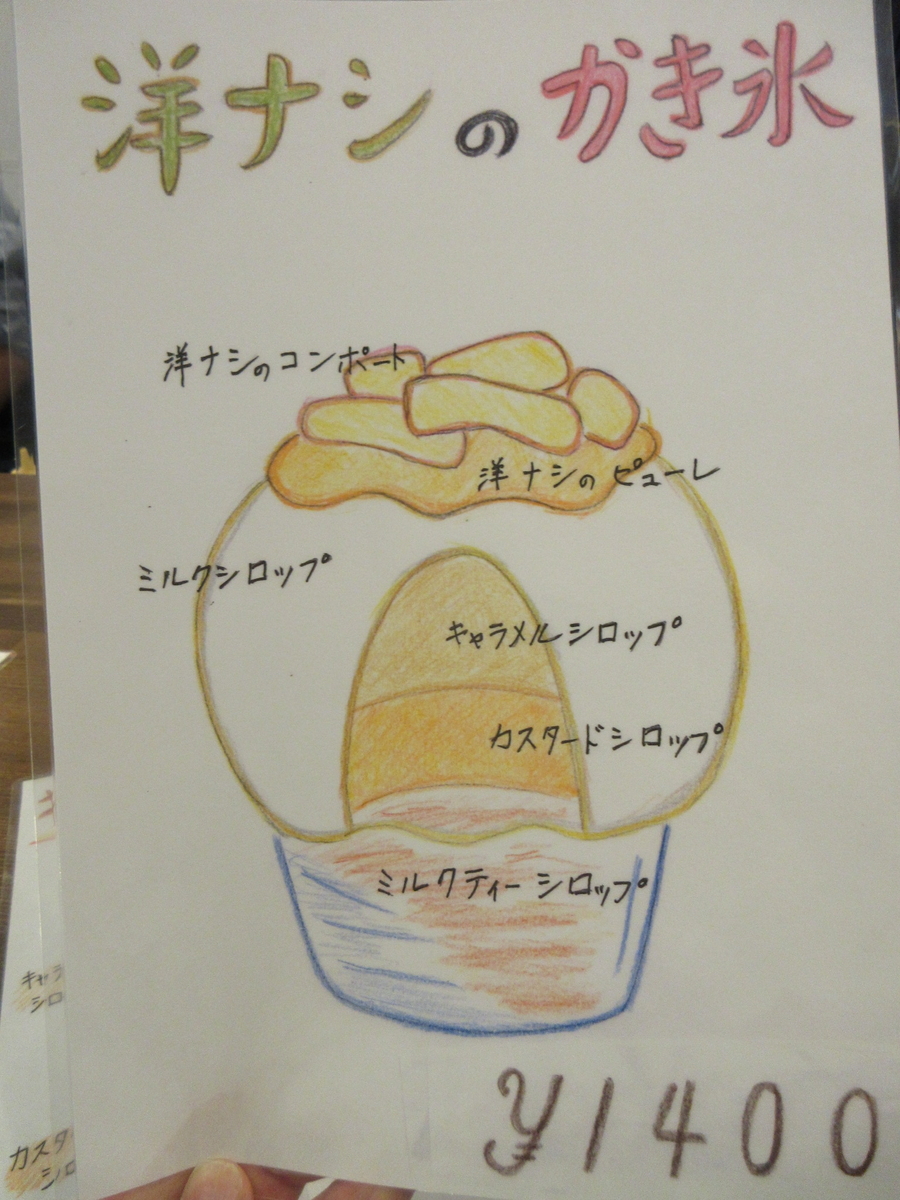 洋ナシのかき氷
洋ナシのコンポート
洋ナシのピューレ
ミルクシロップ
キャラメルシロップ
カスタードシロップ
ミルクティーシロップ
キャラ
シロ
カスタ
シロ
¥1400